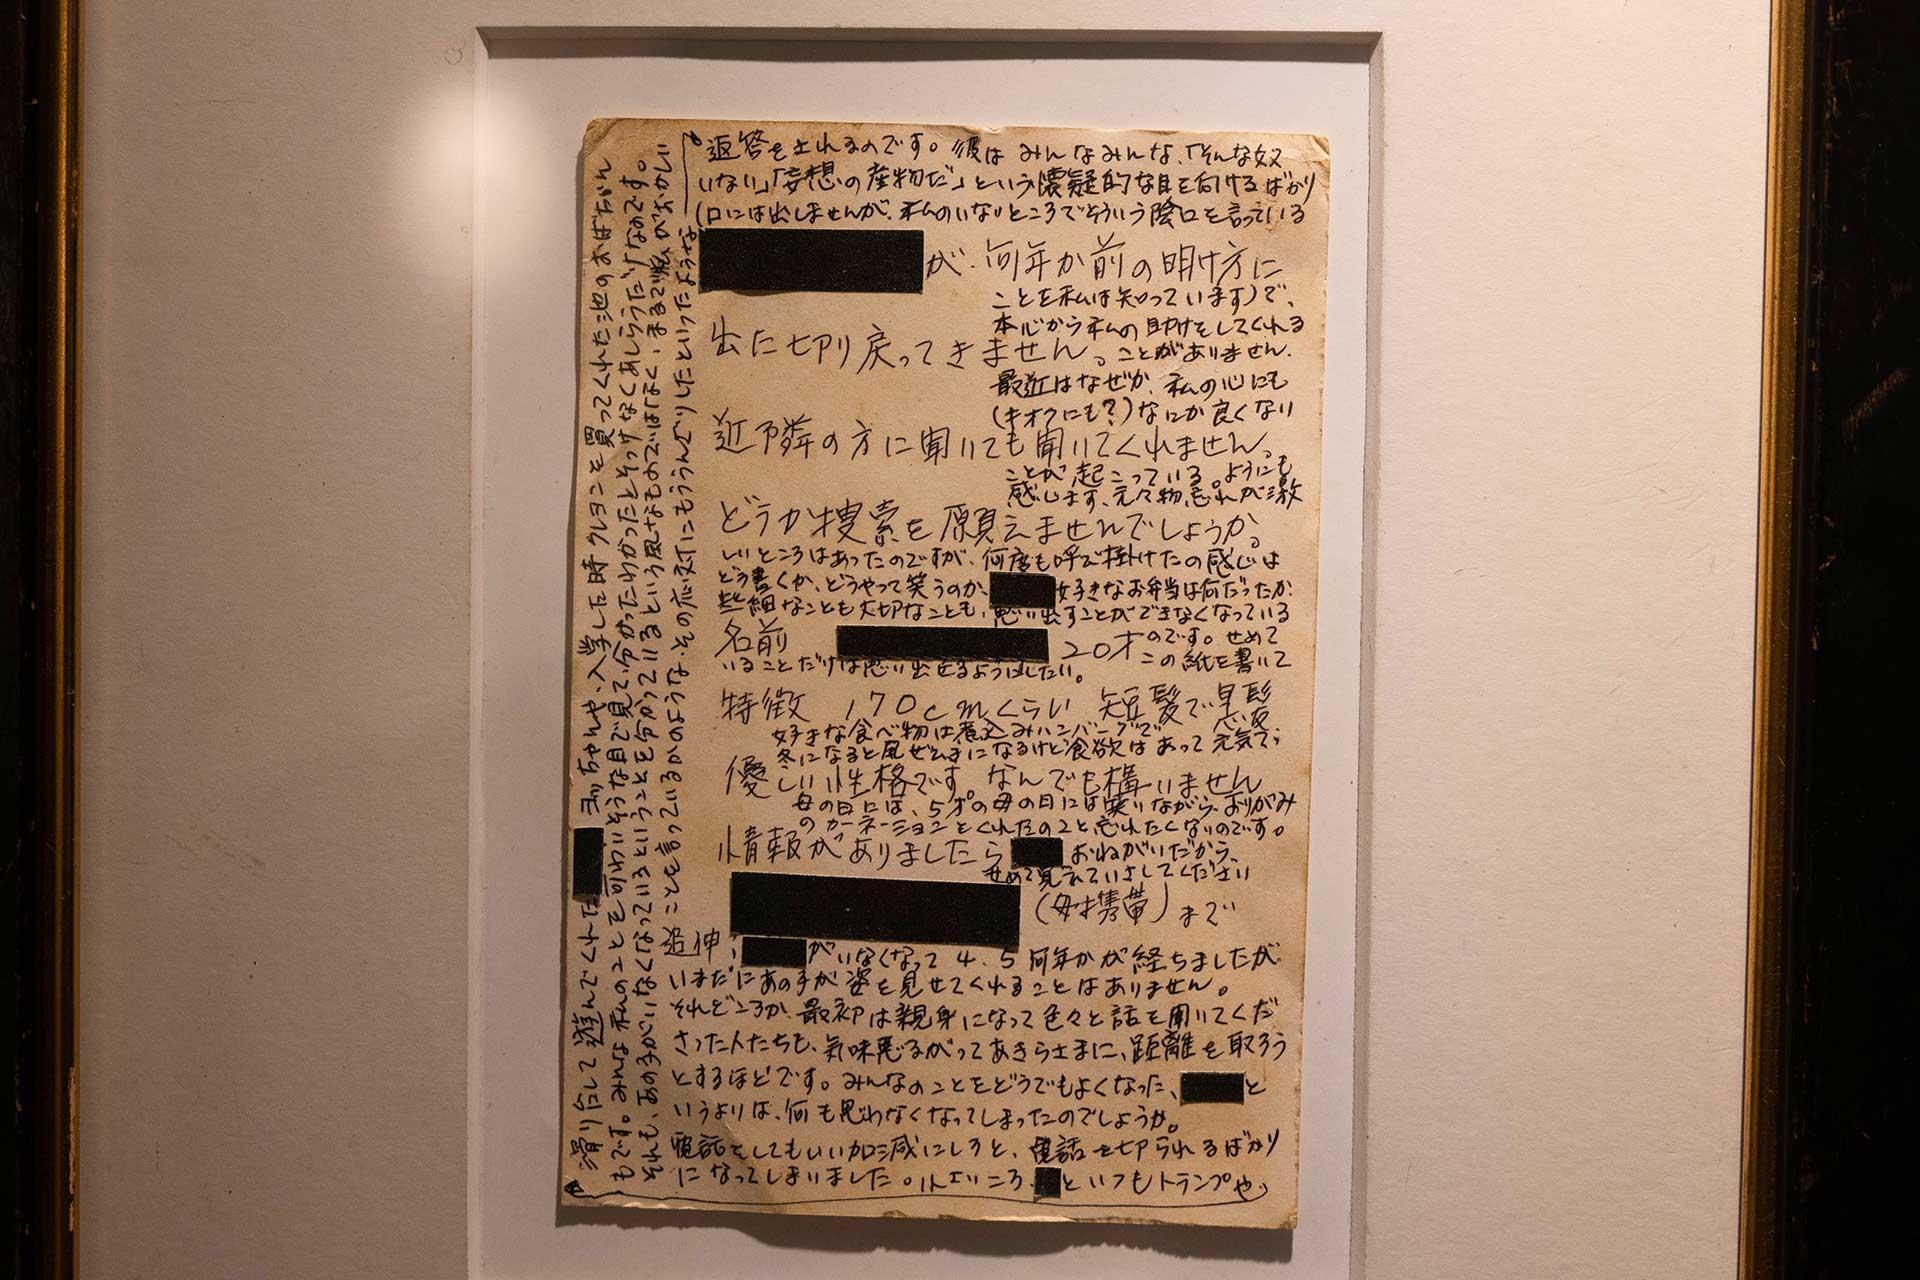 ■が、何年か前の明け方に
出た切り戻ってきません。
近隣の方に聞いても聞いてくれません。
どうか捜索を願えませんでしょうか。
名前 ■ 20才
特徴 170cmくらい 短髪で黒髪
優しい性格です。なんでも構いません
情報がありましたら
■(母携帯)まで
追伸:■がいなくなって4、5何年かが経ちましたが
いまだにあの子が姿を見せてくれることはありません。
それどころか、最初は親身になって色々と話を聞いてくだ
さった人たちも、気味悪るがってあきらさまに、距離を取ろう
とするほどです。みんなのことをどうでもよくなった、■と
いうよりは、何も思わなくなってしまったのでしょうか。
電話をしてもいい加減にしろと、電話を切られるばかり
になってしまいました。小さいころ、■といつもトランプや
滑り台にして遊んでくれた■ヨッちゃんや、入学した時クレヨンを買ってくれた池のおばちゃん
もです。みんな私のことを可わいそうな目で見て、分かったわかったとそっけなくあしらうだけなのです。
それも、あの子がいなくなっているということを分かっているという風なものではなく、まるで私がおかしい
ことを言っているかのような、その応対にもううんざりしたといったような
返答をされるのです。彼は みんなみんな、「そんな奴
いない」「妄想の産物だ」という懐疑的な目を向けるばかり
(口には出しませんが、私のいないところでそういう陰口を言っている
ことを私は知っています)で、
本心から私の助けをしてくれる
ことがありません。
最近はなぜか、私の心にも
(キオクにも?)なにか良くない
ことが起こっている。ようにも
感じます、元々物忘れが激
しいところはあったのですが、何度も呼で掛けたの感じは
どう書くか、どうやって笑うのか、■好きなお弁当は何だったか、
些細なことも大切なことも、思い出すことができなくなっている
のです。せめて
この紙を書いて
いることだけは思い出せるようにしたい。
好きな食べ物は煮込みハンバーグで
冬になると風ぜ気味になるけど食欲はあって元気で、
母の日には、5才の母の日には笑いながら、おりがみ
のカーネーションをくれたのことを忘れたくないのです。
■おねがいだから、
せめて覚えていさしてください